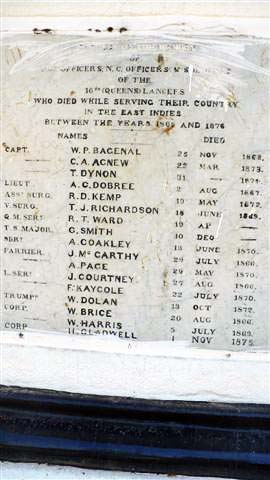 OF
OFFICERS, N.C. OFFICERS
OF THE
16TH (QUEENS) LANCERS
WHO DIED WHILE SERVING THEIR COUNTRY
IN THE EAST INDIES
BETWEEN THE YEARS AND 1876
NAMES DIED
CAPT. W. P. BAGENAL 25 NOV
— C. A. AGNEW 22 MAR 1873.
— T. DYNON 31 —
LIEUT A. G. DOBREE 2 AUG 1867.
ASST SURG. R. D. KEMP 19 MAY 1872.
V. SURG. T. J. RICHARDSON 18 JUNE
Q. M. SERT R. T. WARD 19 AP —
T. S. MAJOR. G. SMITH 10 DEG —
A. COAKLEY 13 JUNE 1870.
FARRIER. J. MCCARTHY 29 JULY
— A. PAGE 29 MAY 1870.
L. SERT J. COURTNEY 27 AUG
— F. KAYCOLE 22 JULY 1870.
TRUMPR W. DOLAN 13 OCT 1872.
CORP. W. BRICE 20 AUG
— W. HARRIS 5 JULY
CORP H. GLADWELL 1 NOV 1875.